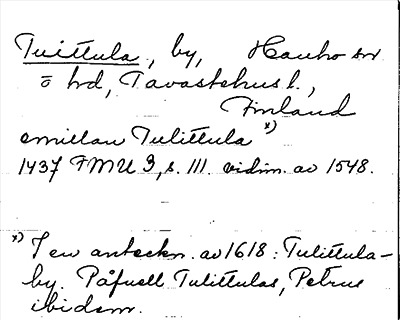 Tuittula, by, Hauho sn
o hd, Tavastehus l.,
Finland
emillan Tulittula x)
1437 FMU 3, s. 111. vidim. av 1548.
x) I en anteckn. av 1618: Tulittula-
by. Påfuell Tulittulas, Petrus
ibidem.